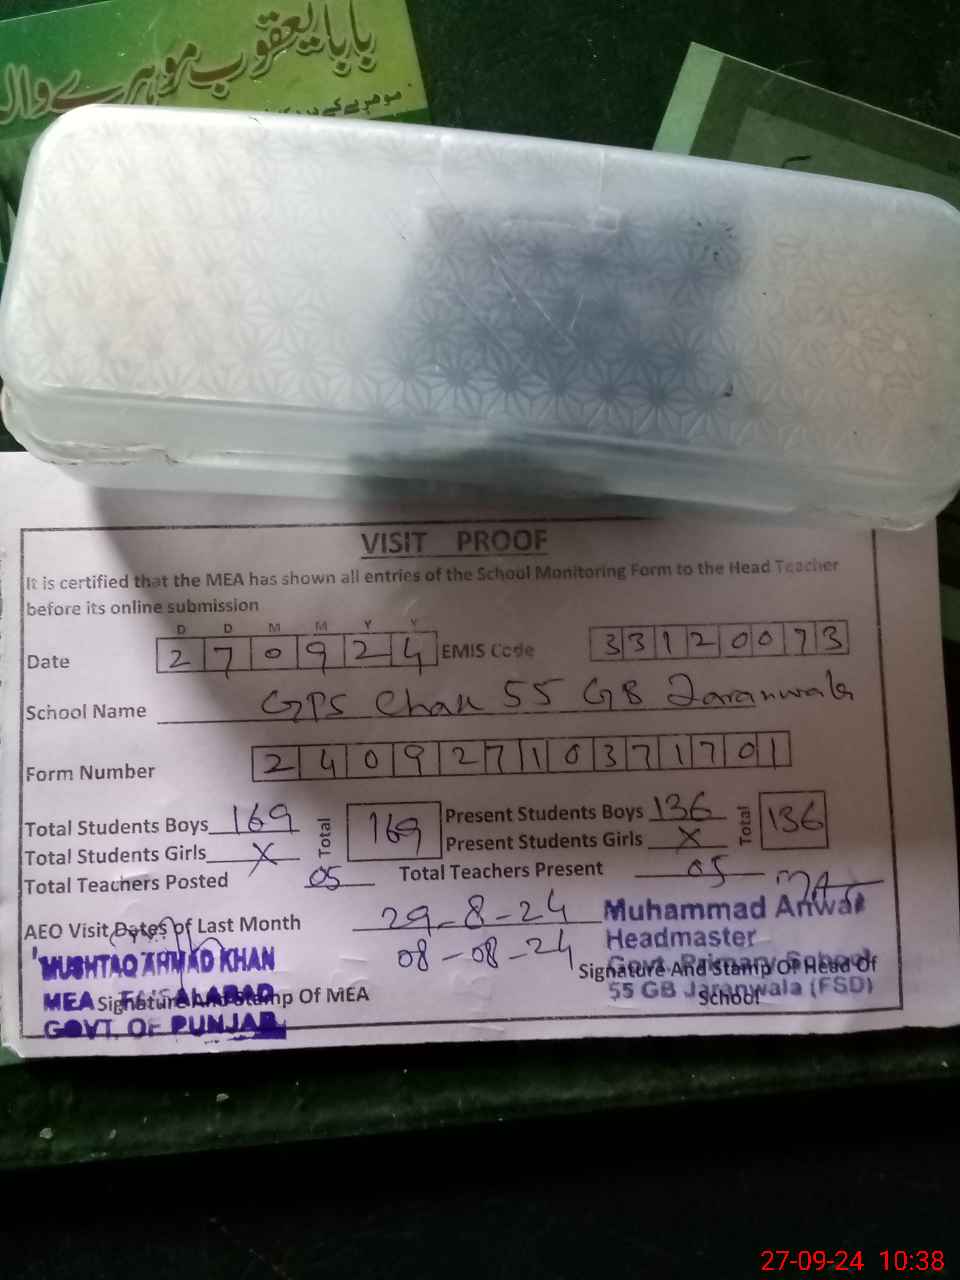 بابا یعقوب موہرے وال
VISIT PROOF
It is certified that the MEA has shown all entries of the School Monitoring Form to the Head Teacher
before its online submission
D D M M Y Y
Date 2 7 0 9 2 4 EMIS Code 3 3 1 2 0 0 7 3
School Name GPS Chak 55 GB Jaranwala
Form Number 2 4 0 9 2 7 1 0 3 7 1 7 0 1
Total Students Boys 169 Total 169 Present Students Boys 136 Total 136
Total Students Girls X Present Students Girls X
Total Teachers Posted 05 Total Teachers Present 05
AEO Visit Dates of Last Month 29-8-24
08-08-24
Muhammad Anwar
Headmaster
Govt. Primary School
55 GB Jaranwala (FSD)
Signature And Stamp Of Head Of
School
MUSHTAQ AHMAD KHAN
MEA FAISALABAD
GOVT. OF PUNJAB
Signature And Stamp Of MEA
27-09-24 10:38